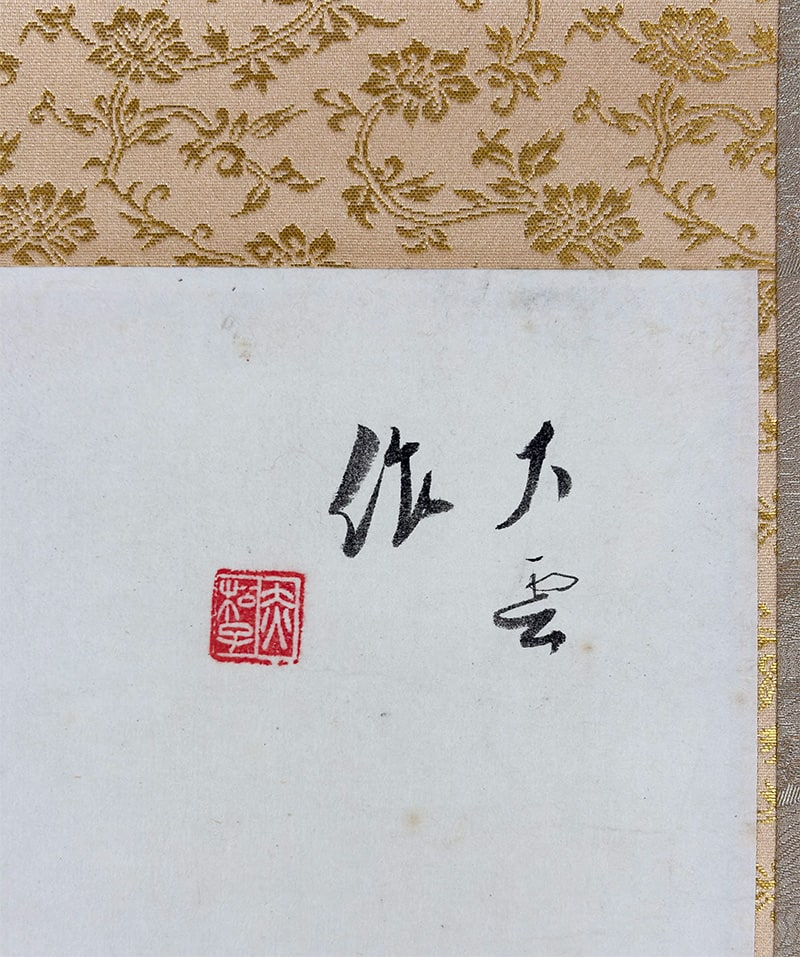 大雲
作